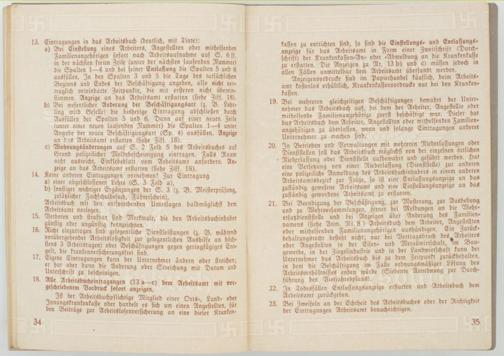 13. Eintragungen in das Arbeitsbuch (deutlich, mit Tinte):
a) Bei Einstellung eines Arbeiters, Angestellten oder mithelfenden
Familienangehörigen sofort nach Arbeitsaufnahme auf S. 6 ff.
in der nächsten freien Zeile (unter der nächsten laufenden Nummer)
die Spalten 1—4 und bei seiner Entlassung die Spalten 5 und 6
ausfüllen. In den Spalten 3 und 5 die Tage des tatsächlichen
Beginns und Endes der Beschäftigung angeben, alle nicht
Anzeige an das Arbeitsamt erstatten (siehe Ziff. 18).
b) Bei wesentlicher Änderung der Beschäftigungsart (z. B. Lehrling
wird Geselle) die bisherige Eintragung abschließen durch
Ausfüllen der Spalten 5 und 6. Dann auf einer neuen Zeile
(unter einer neuen laufenden Nummer) die Spalten 1—4 unter
Angabe der neuen Beschäftigungsart (Sp. 4) ausfüllen. Anzeige
an das Arbeitsamt erstatten (siehe Ziff. 18).
c) Wohnungsänderungen auf S. 2 Zeile 5 des Arbeitsbuches auf
Grund polizeilicher Meldebescheinigung eintragen. Falls Raum
nicht ausreicht, Einklebezettel vom Arbeitsamt anfordern. Anzeige
an das Arbeitsamt erstatten (siehe Ziff. 18).
14. Keine anderen Eintragungen vornehmen! Zur Eintragung
a) einer abgeschlossenen Lehre (S. 3 Zeile a),
b) sonstiger wichtiger Ergänzungen der S. 3 (z. B. Meisterprüfung,
zusätzlicher Fachschulbesuch, Führerschein),
Arbeitsbuch mit den entsprechenden Unterlagen baldmöglichst dem
Arbeitsamt vorlegen.
15. Verboten und strafbar sind Merkmale, die den Arbeitsbuchinhaber
günstig oder ungünstig kennzeichnen.
16. Nicht eingetragen sind gelegentliche Dienstleistungen (z. B. während
vorübergehender Arbeitslosigkeit zur gelegentlichen Aushilfe an höchstens
3 Arbeitstagen) oder Beschäftigungen gegen geringfügiges Entgelt,
die krankenversicherungsfrei sind.
17. Eigene Eintragungen kann der Unternehmer ändern oder streichen;
er hat aber dann die Änderung oder Streichung mit Datum und
Unterschrift zu bescheinigen.
18. Alle Arbeitsbucheintragungen (13 a—c) dem Arbeitsamt mit vorgeschriebenem
Vordruck sofort anzeigen.
Ist der Arbeitsbuchpflichtige Mitglied einer Orts-, Land- oder
Innungskrankenkasse oder handelt es sich um einen Angestellten, für
den Beiträge zur Arbeitslosenversicherung an eine dieser Kranken-
34
kassen zu entrichten sind, so sind die Einstellungs- und Entlassungsanzeigen
für das Arbeitsamt in Form einer Zweitschrift (Durchschrift)
der Krankenkassen-An- oder -Abmeldung an die Krankenkasse
zu erstatten. Die Anzeigen zu Nr. 13 b) und c) müssen jedoch in
allen Fällen unmittelbar dem Arbeitsamt übersandt werden.
Anzeigenvordrucke sind im Papierhandel käuflich, beim Arbeitsamt
kostenlos erhältlich, Krankenkassenvordrucke nur bei den Krankenkassen.
19. Bei mehreren gleichzeitigen Beschäftigungen bewahrt der Unternehmer
das Arbeitsbuch auf, bei dem der Arbeiter, Angestellte oder
mithelfende Familienangehörige zuerst beschäftigt war. Dieser hat
das Arbeitsbuch dem Arbeiter, Angestellten oder mithelfenden Familienangehörigen
zu überlassen, wenn und solange Eintragungen anderer
Unternehmer zu machen sind.
20. Bei Betrieben und Verwaltungen mit mehreren Niederlassungen oder
Dienststellen soll das Arbeitsbuch möglichst von der einzelnen örtlichen
Niederlassung oder Dienststelle aufbewahrt und geführt werden. Hat
ein Versetzung von einer Niederlassung (Dienststelle) zur anderen
eine polizeiliche Anmeldung des Arbeitsbuchinhabers in einem anderen
Arbeitsamtsbezirk zur Folge, so ist eine Entlassungsanzeige an das
zuständig gewesene Arbeitsamt und eine Einstellungsanzeige an das
zuständig gewordene Arbeitsamt zu erstatten.
21. Bei Beendigung der Beschäftigung, zur Musterung, zur Aushebung
und zu Wehrversammlungen, ferner bei Meldungen an die Wehrersatzdienststelle
und bei Anzeigen über Änderung des Familiennamens
(siehe Anm. Nr. 8) Arbeitsbuch dem Arbeiter, Angestellten
oder mithelfenden Familienangehörigen aushändigen. Ein Zurückbehaltungsrecht
besteht nicht; nur bei Vertragsbruch des Arbeiters
oder Angestellten in der Eisen- und Metallwirtschaft, im Baugewerbe,
in der Ziegelindustrie und in der Landwirtschaft kann der
Unternehmer das Arbeitsbuch bis zu dem Zeitpunkt zurückbehalten,
in dem die Beschäftigung im Falle ordnungsmäßiger Lösung des
Arbeitsverhältnisses enden würde (Siebente Anordnung zur Durchführung
des Vierjahresplans).
22. In Todesfällen Entlassungsanzeige erstatten und Arbeitsbuch dem
Arbeitsamt zurückgeben.
23. Bei Zweifeln an der Echtheit des Arbeitsbuches oder der Richtigkeit
der Eintragungen Arbeitsamt benachrichtigen.
35